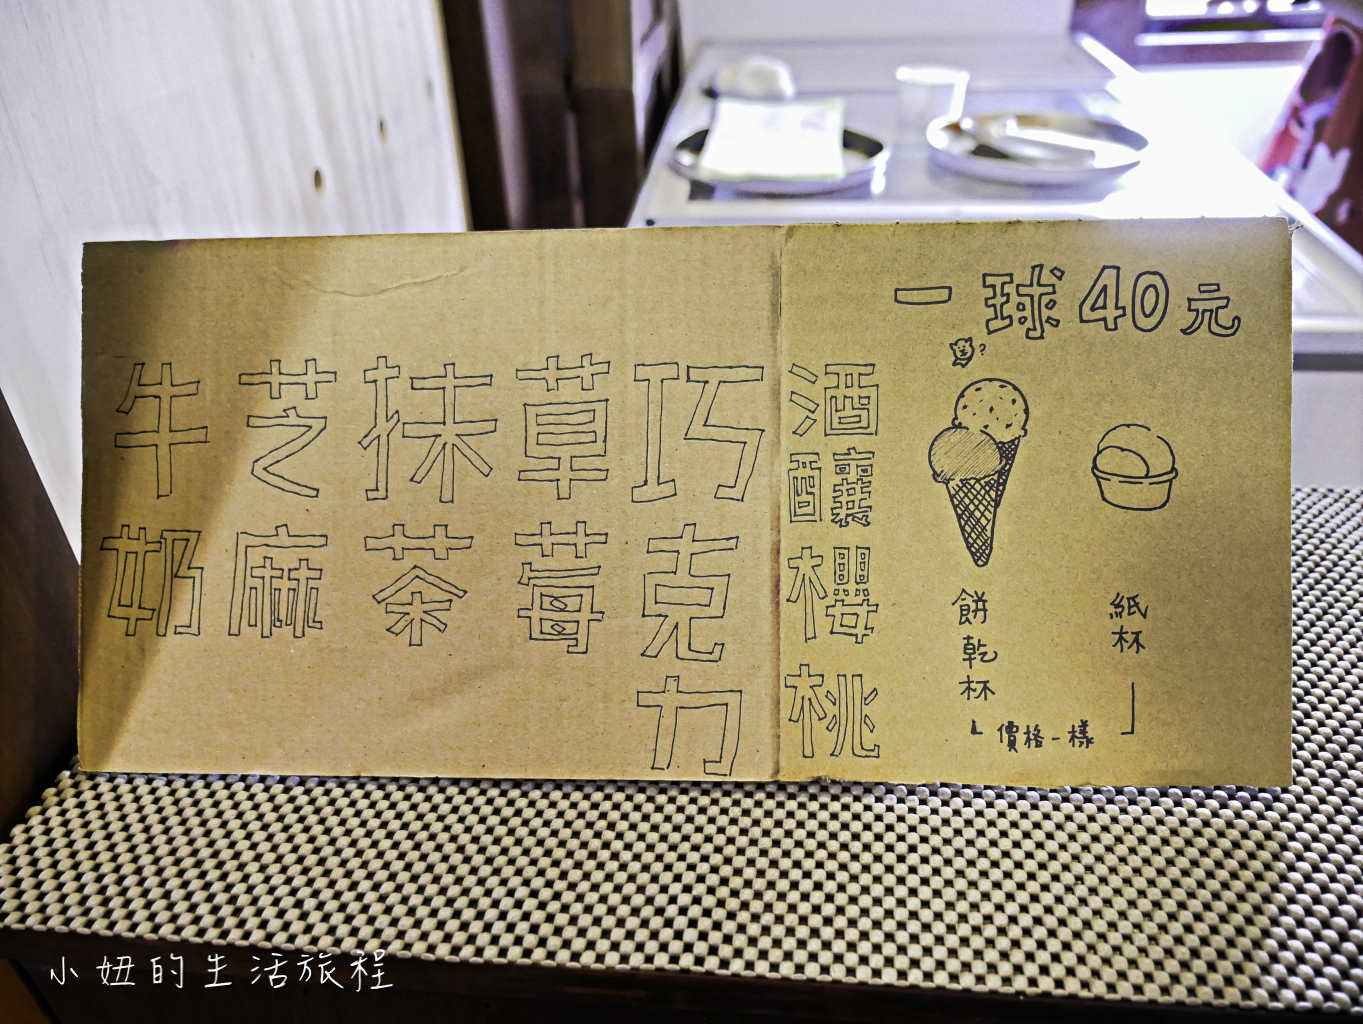 一球40元
?
酒釀櫻桃
巧克力
草莓
抹茶
芝麻
牛奶
餅乾杯
紙杯
價格一樣
小妞的生活旅程